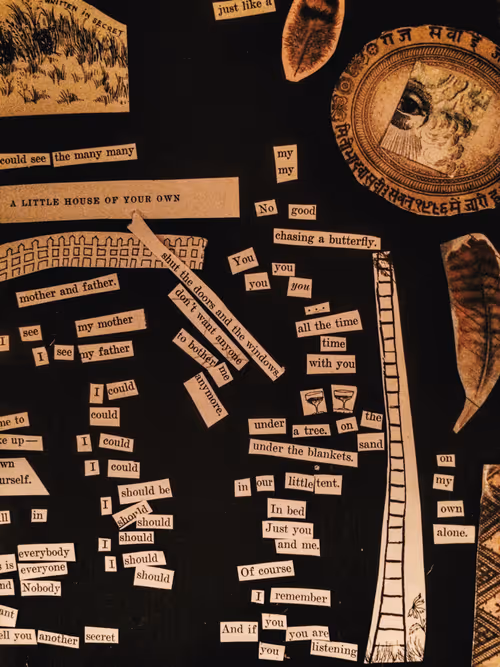 WRITTEN IN SECRET
just like a
could see the many many
my
my
A LITTLE HOUSE OF YOUR OWN
No good
chasing a butterfly.
shut the doors and the windows.
don't want anyone
to bother me
anymore.
mother and father.
see my mother
I see my father
I could
could
I could
I could
me to
ke up—
wn
urself.
in
I should be
should
should
I should
I should
should
is everybody
everyone
nd Nobody
ant
ell you another secret
You
you you
you
....
all the time
time
with you
under a tree. on the
sand
under the blankets.
in our little tent.
In bed
Just you
and me.
Of course
I remember
And if you
you are
you listening
on
my
own
alone.